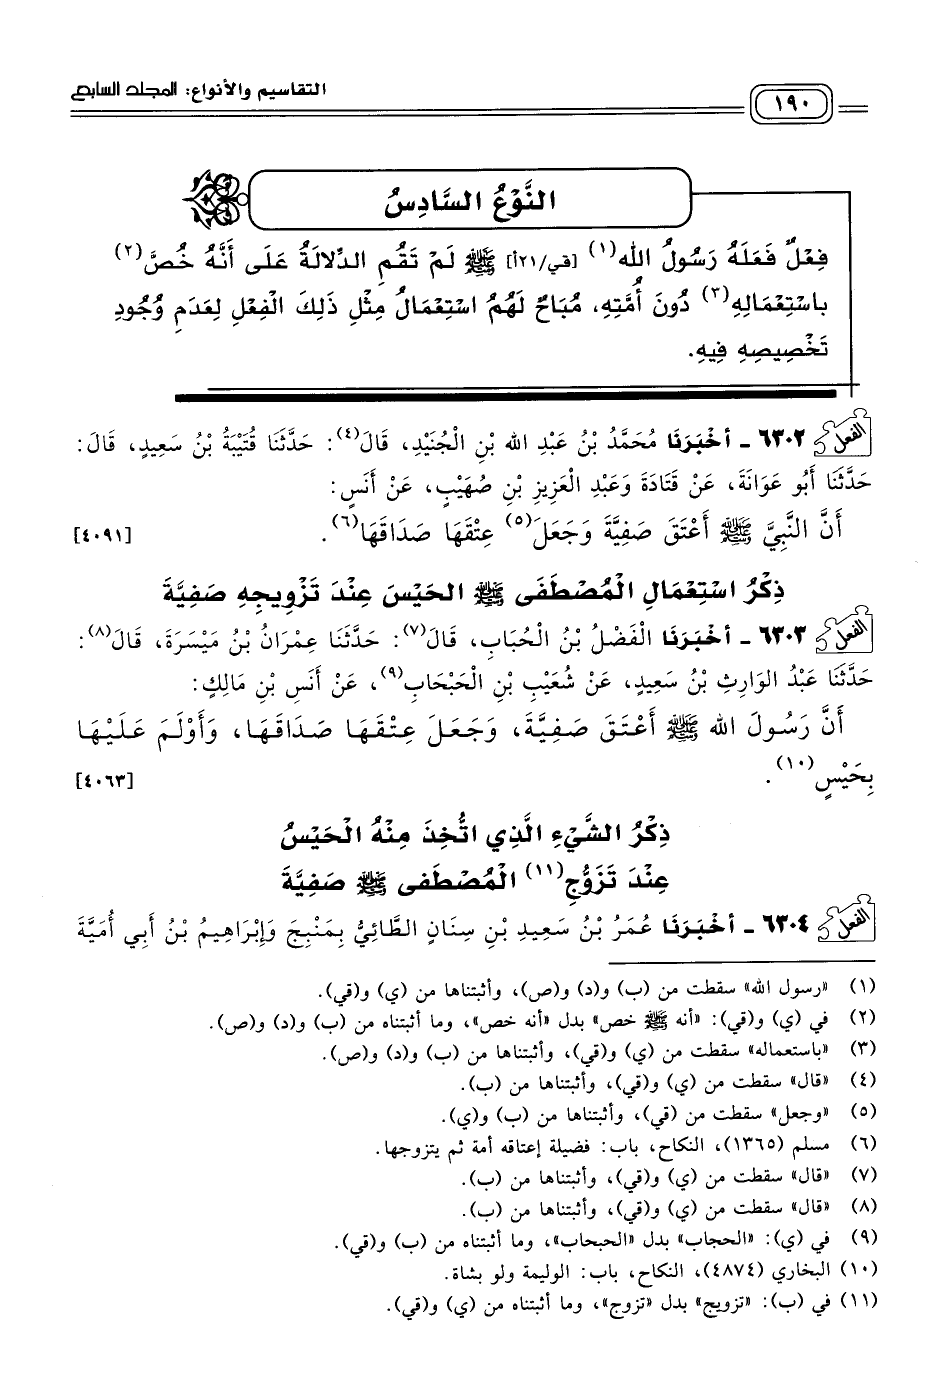 التقاسيم والأنواع: المجلد السابع
١٩٠
النَّوْعُ السَّادِسُ
فِعْلٌ فَعَلَهُ رَسُولُ الله(١) [قي/٢١أ] ﷺ لَمْ تَقُمِ الدِّلالَةُ عَلَى أَنَّهُ خُصَّ(٢)
باسْتِعْمَالِهِ(٣) دُونَ أُمَّتِهِ، مُبَاحٌ لَهُمُ اسْتِعْمَالُ مِثْلِ ذَلِكَ الْفِعْلِ لِعَدَمِ وُجُودِ
تَخْصِيصِهِ فِيهِ.
الفعل ٦٣٠٢ - أَخْبَرَنَا مُحَمَّدُ بْنُ عَبْدِ الله بْنِ الْجُنَيْدِ، قَالَ(٤): حَدَّثَنَا قُتَيْبَةُ بْنُ سَعِيدٍ، قَالَ:
حَدَّثَنَا أَبُو عَوَانَةَ، عَنْ قَتَادَةَ وَعَبْدِ الْعَزِيزِ بْنِ صُهَيْبٍ، عَنْ أَنَسٍ:
أَنَّ النَّبِيَّ ﷺ أَعْتَقَ صَفِيَّةَ وَجَعَلَ(٥) عِتْقَهَا صَدَاقَهَا(٦). [٤٠٩١]
ذِكْرُ اسْتِعْمَالِ الْمُصْطَفَى ﷺ الحَيْسَ عِنْدَ تَزْوِيجِهِ صَفِيَّةَ
الفعل ٦٣٠٣ - أَخْبَرَنَا الْفَضْلُ بْنُ الْحُبَابِ، قَالَ(٧): حَدَّثَنَا عِمْرَانُ بْنُ مَيْسَرَةَ، قَالَ(٨):
حَدَّثَنَا عَبْدُ الوَارِثِ بْنُ سَعِيدٍ، عَنْ شُعَيْبِ بْنِ الْحَبْحَابِ(٩)، عَنْ أَنَسِ بْنِ مَالِكٍ:
أَنَّ رَسُولَ الله ﷺ أَعْتَقَ صَفِيَّةَ، وَجَعَلَ عِتْقَهَا صَدَاقَهَا، وَأَوْلَمَ عَلَيْهَا
بِحَيْسٍ(١٠). [٤٠٦٣]
ذِكْرُ الشَّيْءِ الَّذِي اتُّخِذَ مِنْهُ الْحَيْسُ
عِنْدَ تَزَوُّجِ(١١) الْمُصْطَفى ﷺ صَفِيَّةَ
الفعل ٦٣٠٤ - أَخْبَرَنَا عُمَرُ بْنُ سَعِيدِ بْنِ سِنَانٍ الطَّائِيُّ بِمَنْبِجَ وَإِبْرَاهِيمُ بْنُ أَبِي أُمَيَّةَ
(١) «رسول الله» سقطت من (ب) و(د) و(ص)، وأثبتناها من (ي) و(قي).
(٢) في (ي) و(قي): «أنه ﷺ خص» بدل «أنه خص»، وما أثبتناه من (ب) و(د) و(ص).
(٣) «باستعماله» سقطت من (ي) و(قي)، وأثبتناها من (ب) و(د) و(ص).
(٤) «قال» سقطت من (ي) و(قي)، وأثبتناها من (ب).
(٥) «وجعل» سقطت من (قي)، وأثبتناها من (ب) و(ي).
(٦) مسلم (١٣٦٥)، النكاح، باب: فضيلة إعتاقه أمة ثم يتزوجها.
(٧) «قال» سقطت من (ي) و(قي)، وأثبتناها من (ب).
(٨) «قال» سقطت من (ي) و(قي)، وأثبتناها من (ب).
(٩) في (ي): «الحجاب» بدل «الحبحاب»، وما أثبتناه من (ب) و(قي).
(١٠) البخاري (٤٨٧٤)، النكاح، باب: الوليمة ولو بشاة.
(١١) في (ب): «تزويج» بدل «تزوج»، وما أثبتناه من (ي) و(قي).